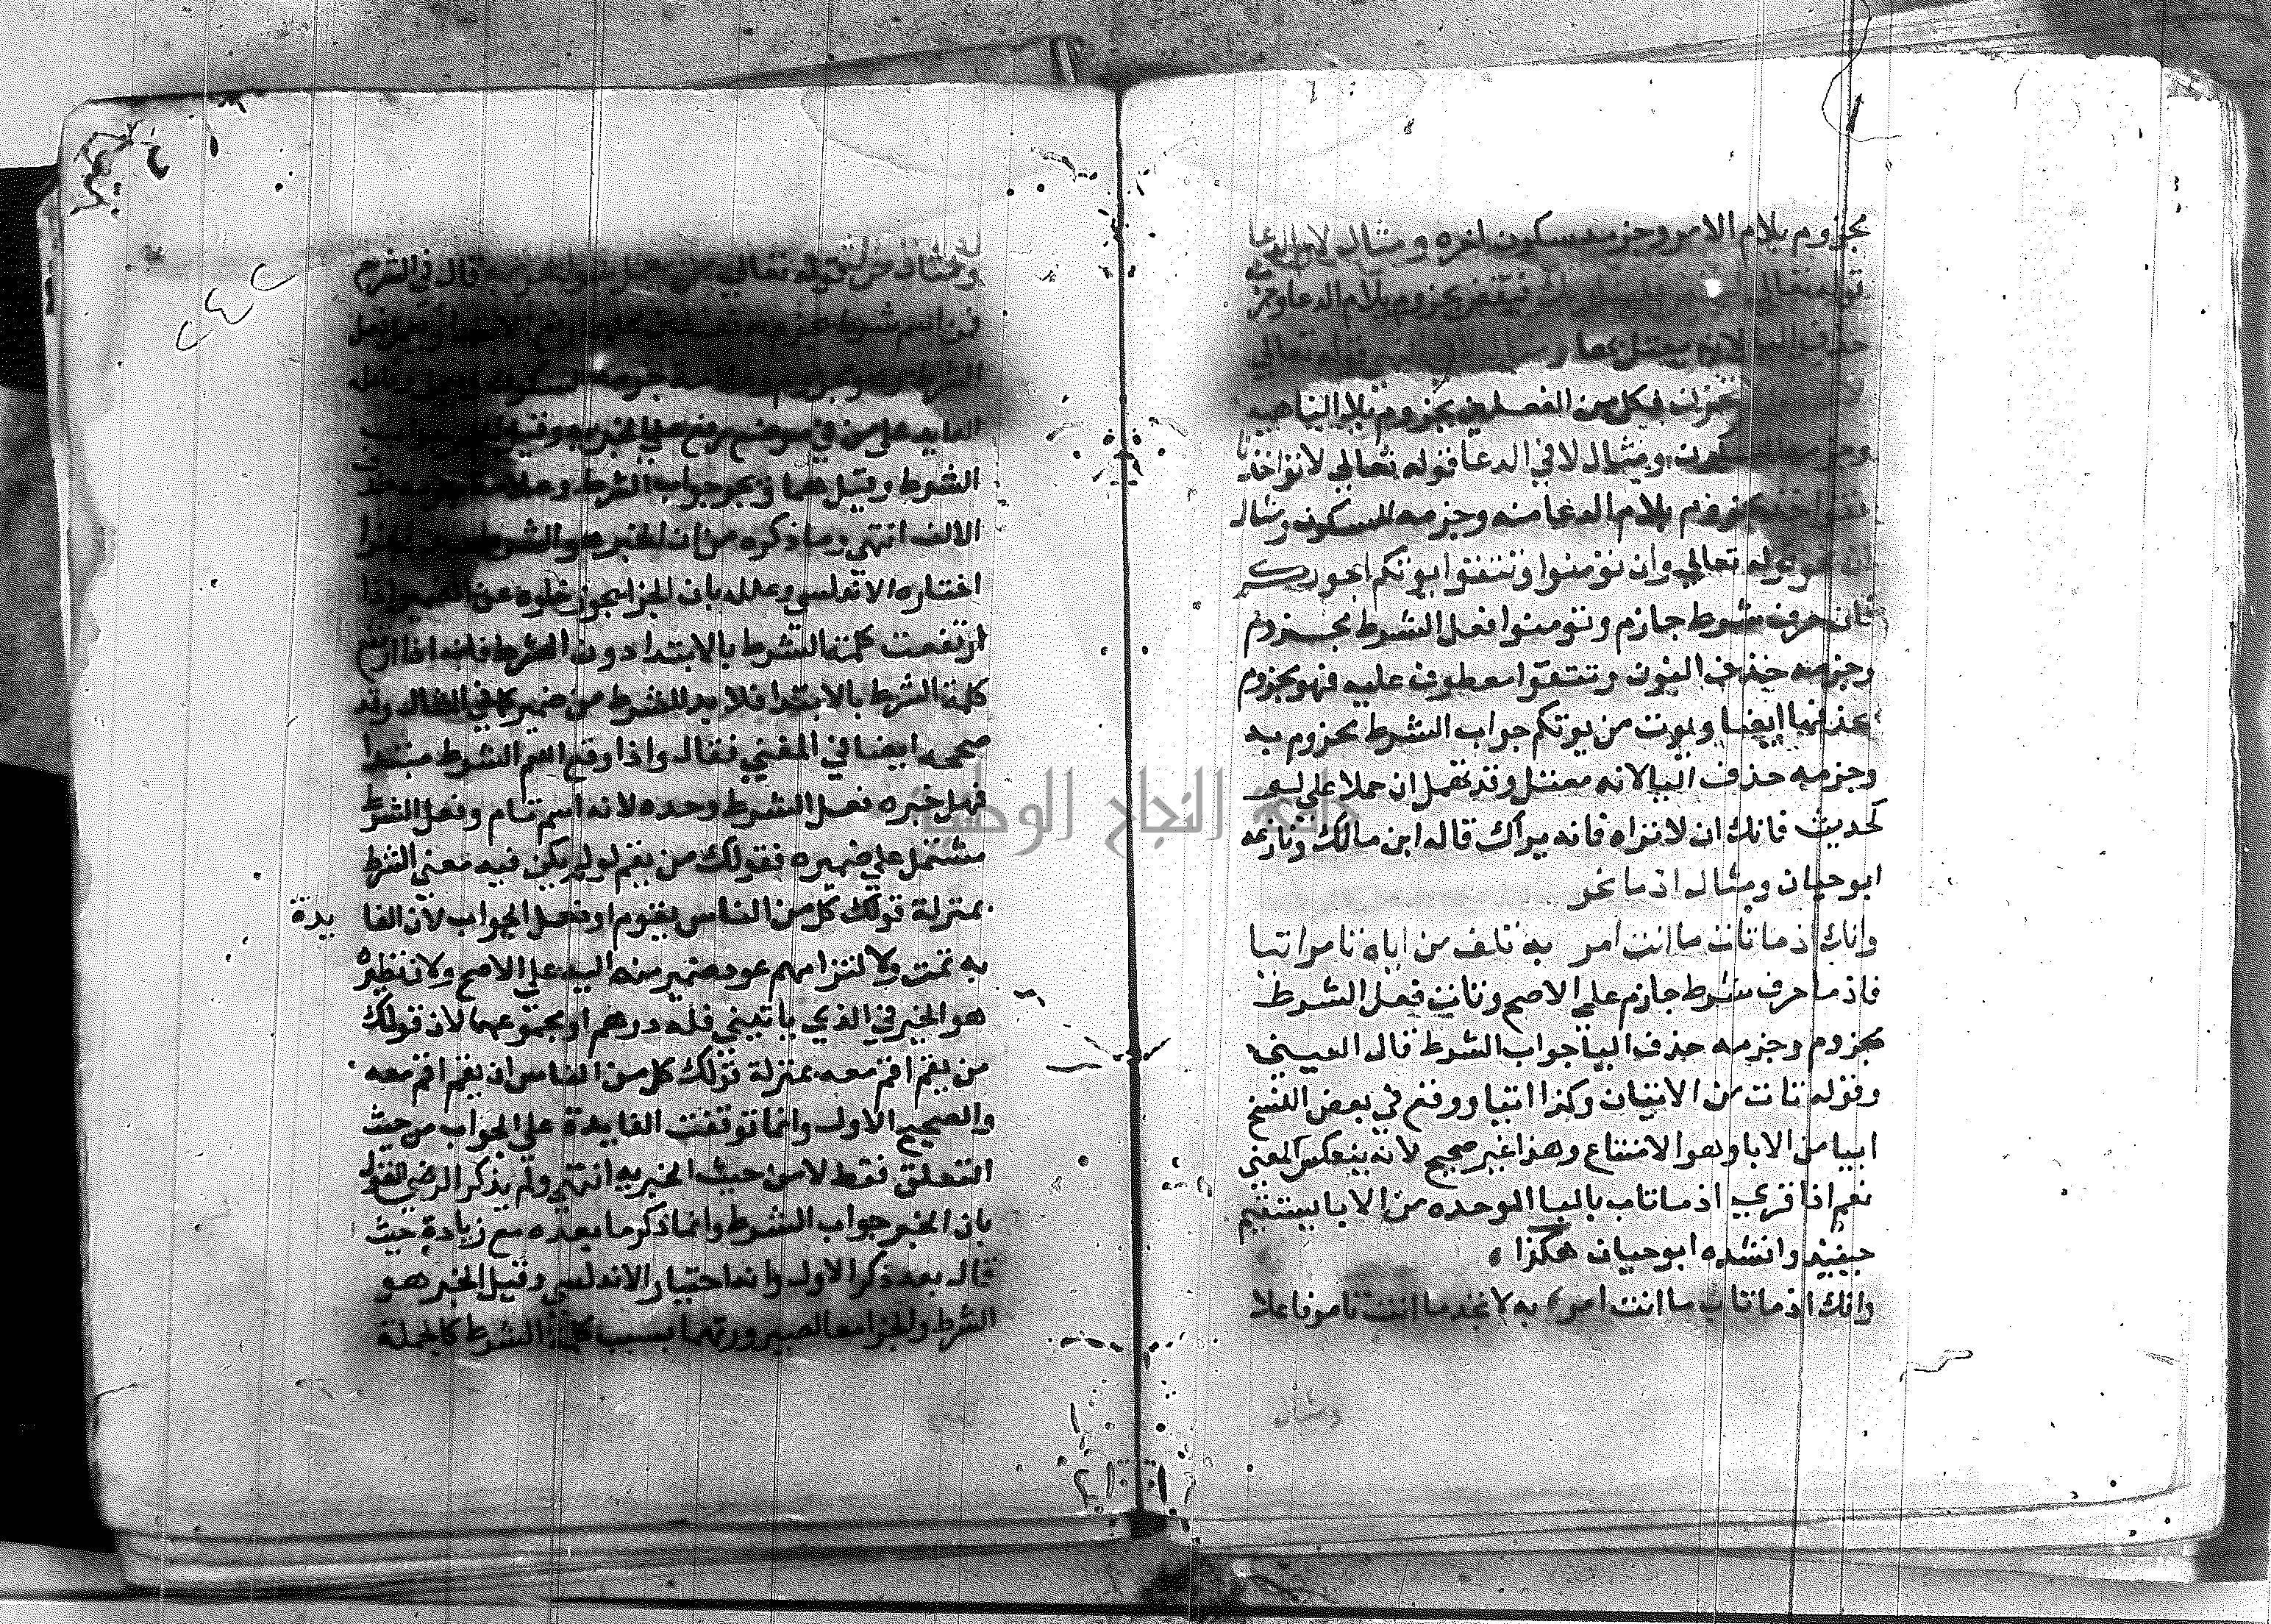 مجزوم بلام الامر وجزمه سكون اخره ومثال لام الدعا
قوله تعالى ليقض علينا ربك فيقض مجزوم بلام الدعا وجز
حذف اليا لانه معتل قوله تعالى
تحزن فكل من الفعلين مجزوم بلا الناهيه
السكون ومثال لا في الدعا قوله تعالى لا تواخذنا
مجزوم بلام الدعا منه وجزمه السكون ومثال
ان نحو قوله تعالى وان تومنوا وتتقوا يوتكم اجوركم
فان حرف شرط جازم وتومنوا فعل الشرط مجزوم
وجزمه حذف النون وتتقوا معطوف عليه فهو مجزوم
بحذفها ايضا ويوت من يوتكم جواب الشرط مجزوم به
وجزمه حذف اليا لانه معتل وقد تهمل ان حملا علي لو
كحديث فانك ان لا تراه فانه يراك قاله ابن مالك ونازعه
ابو حيان ومثال اذ ما نحو
وانك اذ ما تات ما انت امر به تلف من اياه تامر اتيا
فاذ ما حرف شرط جازم علي الاصح وتات فعل الشرط
مجزوم وجزمه حذف اليا جواب الشرط قال العيني
وقوله تات من الاتيان وكذا اتيا ووقع في بعض النسخ
ابيا من الابا وهو الامتناع وهذا غير صحيح لانه ينعكس المعني
نعم اذا قري اذ ما تاب بالبا الموحده من الابا يستقيم
حينيذ وانشده ابو حيان هكذا
وانك اذ ما تاب ما انت امر به لا تجد ما انت تامر فاعلا
ومثال
قوله تعالي من يعمل سوا يجز به قال في الشرح
فمن اسم شرط
الشرط
العايد علي من في موضع رفع علي الخبريه وقيل
الشرط وقيل هما ويجز جواب الشرط وعلامة جزمه حذف
الالف انتهي وما ذكره من ان الخبر هو الشرط الجزا
اختاره الاندلسي وعلله بان الجزا يجوز خلوه عن الضمير اذا
ارتفعت كلمة الشرط بالابتدا دون الشرط فانه اذا ارتفع
كلمة الشرط بالابتدا فلا بد للشرط من ضمير كما في المثال وقد
صححه ايضا في المغني فقال واذا وقع اسم الشرط مبتدا
فهل خبره فعل الشرط وحده لانه اسم تام وفعل الشرط
مشتمل علي ضميره فقولك من يقم لو لم يكن فيه معني الشرط
بمنزلة قولك كل من الناس يقوم او فعل الجواب لان الفا يدة
به تمت ولالتزامهم عود ضمير منه اليه علي الاصح ولان نظيره
هو الخبر في الذي ياتيني فله درهم او مجموعهما لان قولك
من يقم اقم معه بمنزلة قولك كل من الناس ان يقم اقم معه
والصحيح الاول وانما توقفت الفايدة علي الجواب من حيث
التعلق فقط لا من حيث الخبريه انتهي ولم يذكر الرضي القول
بان الخبر جواب الشرط وانما ذكر ما بعده مع زيادة حيث
قال بعد ذكر الاول وانه اختيار الاندلسي وقيل الخبر هو
الشرط والجزا معا لصيرورتهما بسبب كلمة الشرط كالجملة